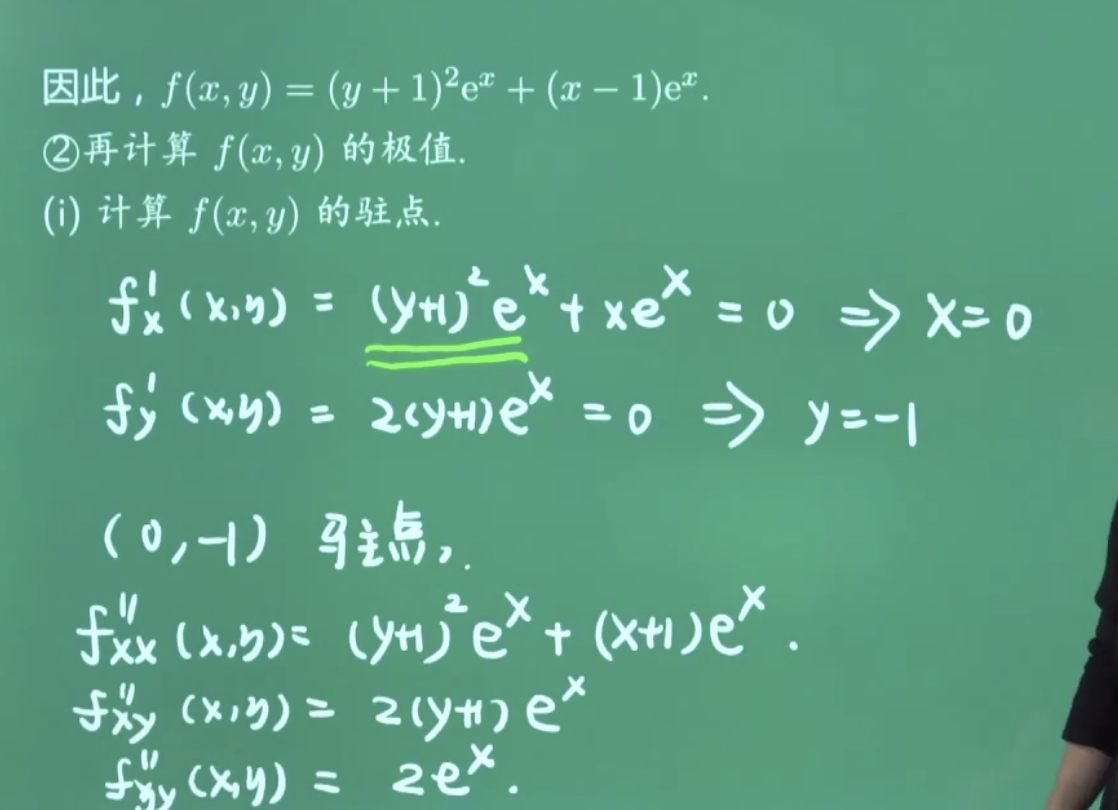 因此，f(x, y) = (y + 1)²eˣ + (x − 1)eˣ.
②再计算 f(x, y) 的极值.
(i) 计算 f(x, y) 的驻点.
f'ₓ (x,y) = (y+1)²eˣ + xeˣ = 0 ⇒ x = 0
f'y (x,y) = 2(y+1)eˣ = 0 ⇒ y = -1
(0, -1) 驻点,.
f''xx (x,y) = (y+1)²eˣ + (x+1)eˣ.
f''xy (x,y) = 2(y+1)eˣ
f''yy (x,y) = 2eˣ.